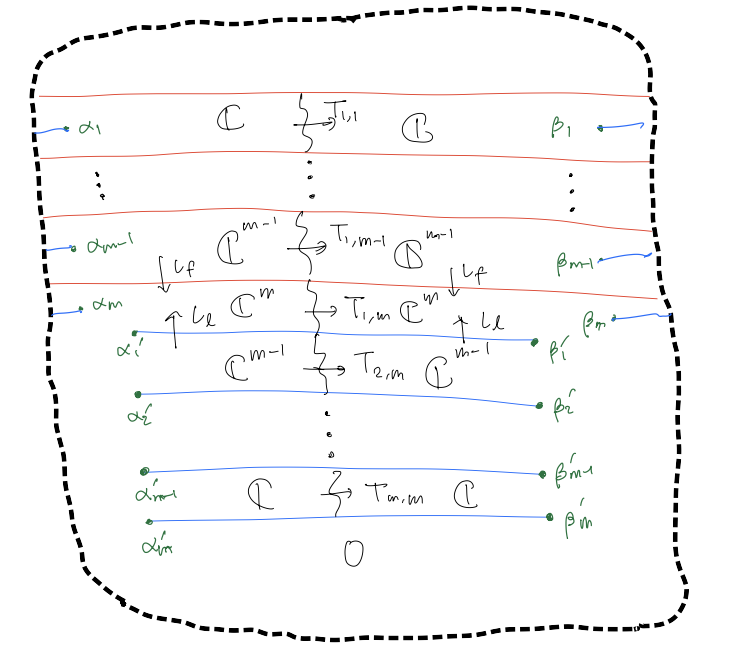 α₁ ℂ T₁,₁ ℂ β₁
⋮ ⋮ ⋮
αₘ₋₁ ℂᵐ⁻¹ T₁,ₘ₋₁ ℂᵐ⁻¹ βₘ₋₁
ι_f ι_f
αₘ ι_ℓ ℂᵐ T₁,ₘ ℂᵐ ι_ℓ βₘ
α₁′ β₁′
ℂᵐ⁻¹ T₂,ₘ ℂᵐ⁻¹
α₂′ β₂′
⋮
α′ₘ₋₁ β′ₘ₋₁
ℂ Tₘ,ₘ ℂ
α′ₘ β′ₘ
0